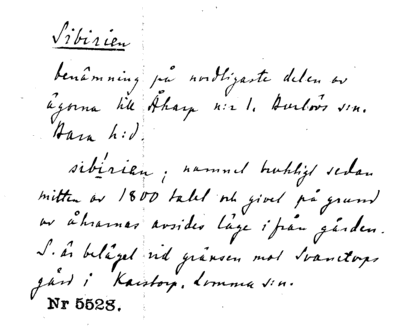 Sibirien
benämning på nordligaste delen av
ägorna till Åkarp n:r 1. Burlövs s:n.
Bara h:d.
sibirien; namnet brukligt sedan
mitten av 1800 talet och givet på grund
av åkrarnas avsides läge ifrån gården.
S. är beläget vid gränsen mot Svanetorps
gård i Karstorp. Lomma s:n.
Nr 5528.